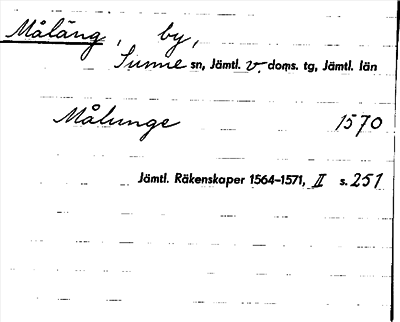 Målång, by,
Sunne sn, Jämtl. v. doms. tg, Jämtl. län
Målunge 1570
Jämtl. Räkenskaper 1564-1571, II s. 251